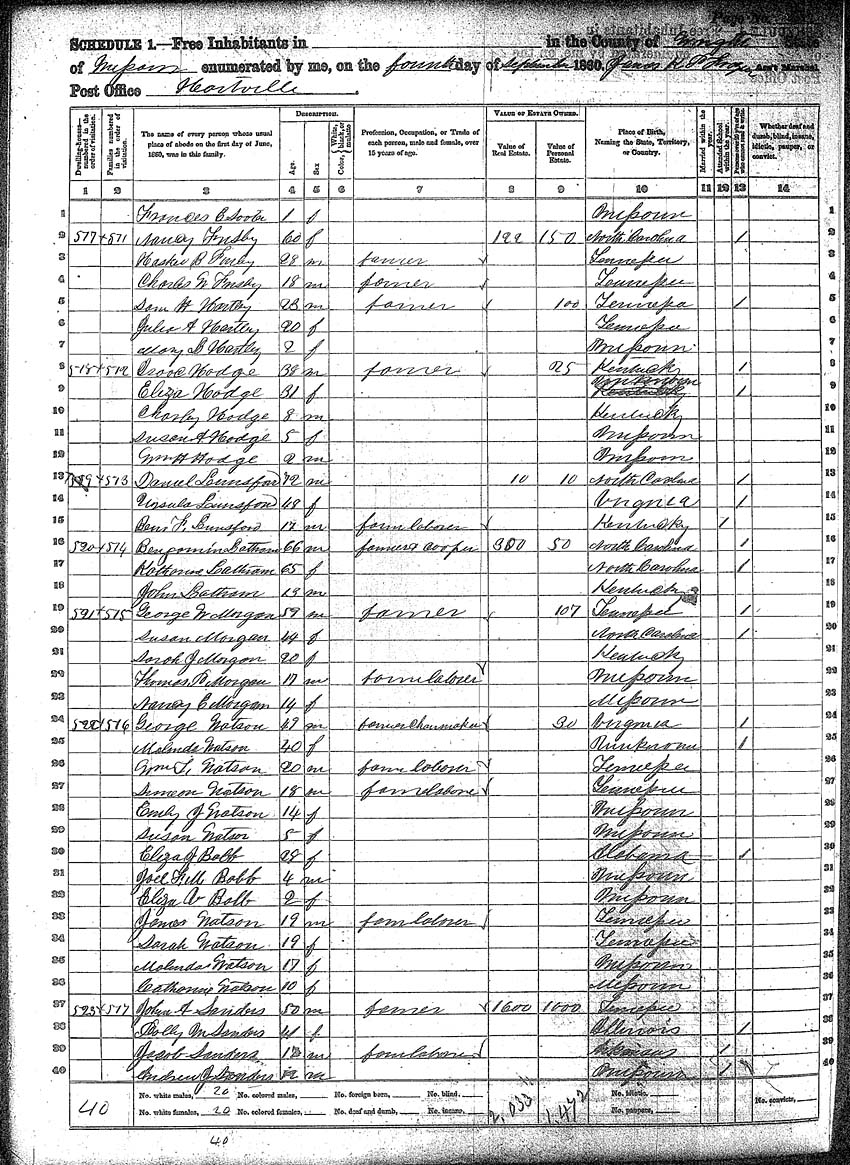 SCHEDULE 1.—Free Inhabitants in in the County of Wright State
of Missouri enumerated by me, on the fourth day of September 1860. James K. Ass't Marshal
Post Office Hartville
Dwelling-houses—numbered in the order of visitation.
Families numbered in the order of visitation.
The name of every person whose usual place of abode on the first day of June, 1860, was in this family.
DESCRIPTION.
Age.
Sex
Color, White, black, or mulatto
Profession, Occupation, or Trade of each person, male and female, over 15 years of age.
VALUE OF ESTATE OWNED.
Value of Real Estate.
Value of Personal Estate.
Place of Birth, Naming the State, Territory, or Country.
Married within the year.
Attended School within the year.
Persons over 20 y'rs of age who cannot read & write.
Whether deaf and dumb, blind, insane, idiotic, pauper, or convict.
1 2 3 4 5 6 7 8 9 10 11 12 13 14
1 Frances E 1 f Missouri 1
2 517 511 Nancy 60 f 122 150 North Carolina 1 2
3 28 m farmer Tennessee 3
4 Charles W 18 m farmer Tennessee 4
5 Sam H Hartley 23 m farmer 100 Tennessee 1 5
6 Julia A Hartley 20 f Tennessee 6
7 Mary Hartley 2 f Missouri 7
8 518 512 Hodge 38 m farmer 25 Kentucky 1 8
9 Eliza Hodge 31 f Unknown 1 9
10 Charley Hodge 8 m Kentucky 10
11 Susan A Hodge 5 f Missouri 11
12 Wm H Hodge 2 m Missouri 12
13 519 513 Daniel Lunsford 72 m 10 10 North Carolina 1 13
14 Ursula Lunsford 48 f Virginia 1 14
15 Benj F Lunsford 17 m farm laborer Kentucky 1 15
16 520 514 Benjamin Lathram 66 m farmer & cooper 300 50 North Carolina 1 16
17 Katharine Lathram 65 f North Carolina 1 17
18 John Lathram 12 m Kentucky 18
19 521 515 George W Morgan 59 m farmer 107 Tennessee 1 19
20 Susan Morgan 44 f North Carolina 1 20
21 Sarah J Morgan 20 f Kentucky 21
22 Thomas B Morgan 17 m farm laborer Missouri 22
23 Nancy E Morgan 14 f Missouri 23
24 522 516 George Watson 49 m farmer Chairmaker 30 Virginia 1 24
25 Malinda Watson 40 f Unknown 1 25
26 Wm Watson 20 m farm laborer Tennessee 26
27 Simeon Watson 18 m farm laborer Tennessee 27
28 Emily J Watson 14 f Missouri 28
29 Susan Watson 5 f Missouri 29
30 Eliza J Bobb 28 f Alabama 1 30
31 Joel Bobb 4 m Missouri 31
32 Eliza A Bobb 2 f Missouri 32
33 James Watson 19 m farm laborer Tennessee 33
34 Sarah Watson 19 f Tennessee 34
35 Malinda Watson 17 f Missouri 35
36 Catharine Watson 10 f Missouri 36
37 523 517 John A Sanders 50 m farmer 1600 1000 Tennessee 37
38 Polly M Sanders 41 f Illinois 1 38
39 Jacob Sanders 18 m farm laborer Arkansas 1 39
40 Andrew J Sanders 12 m Missouri 1 40
40 No. white males, 20 No. colored males, No. foreign born, No. blind. 2,033 1,472 No. idiotic, No. convicts,
No. white females, 20 No. colored females, No. deaf and dumb, No. insane, No. paupers,
40